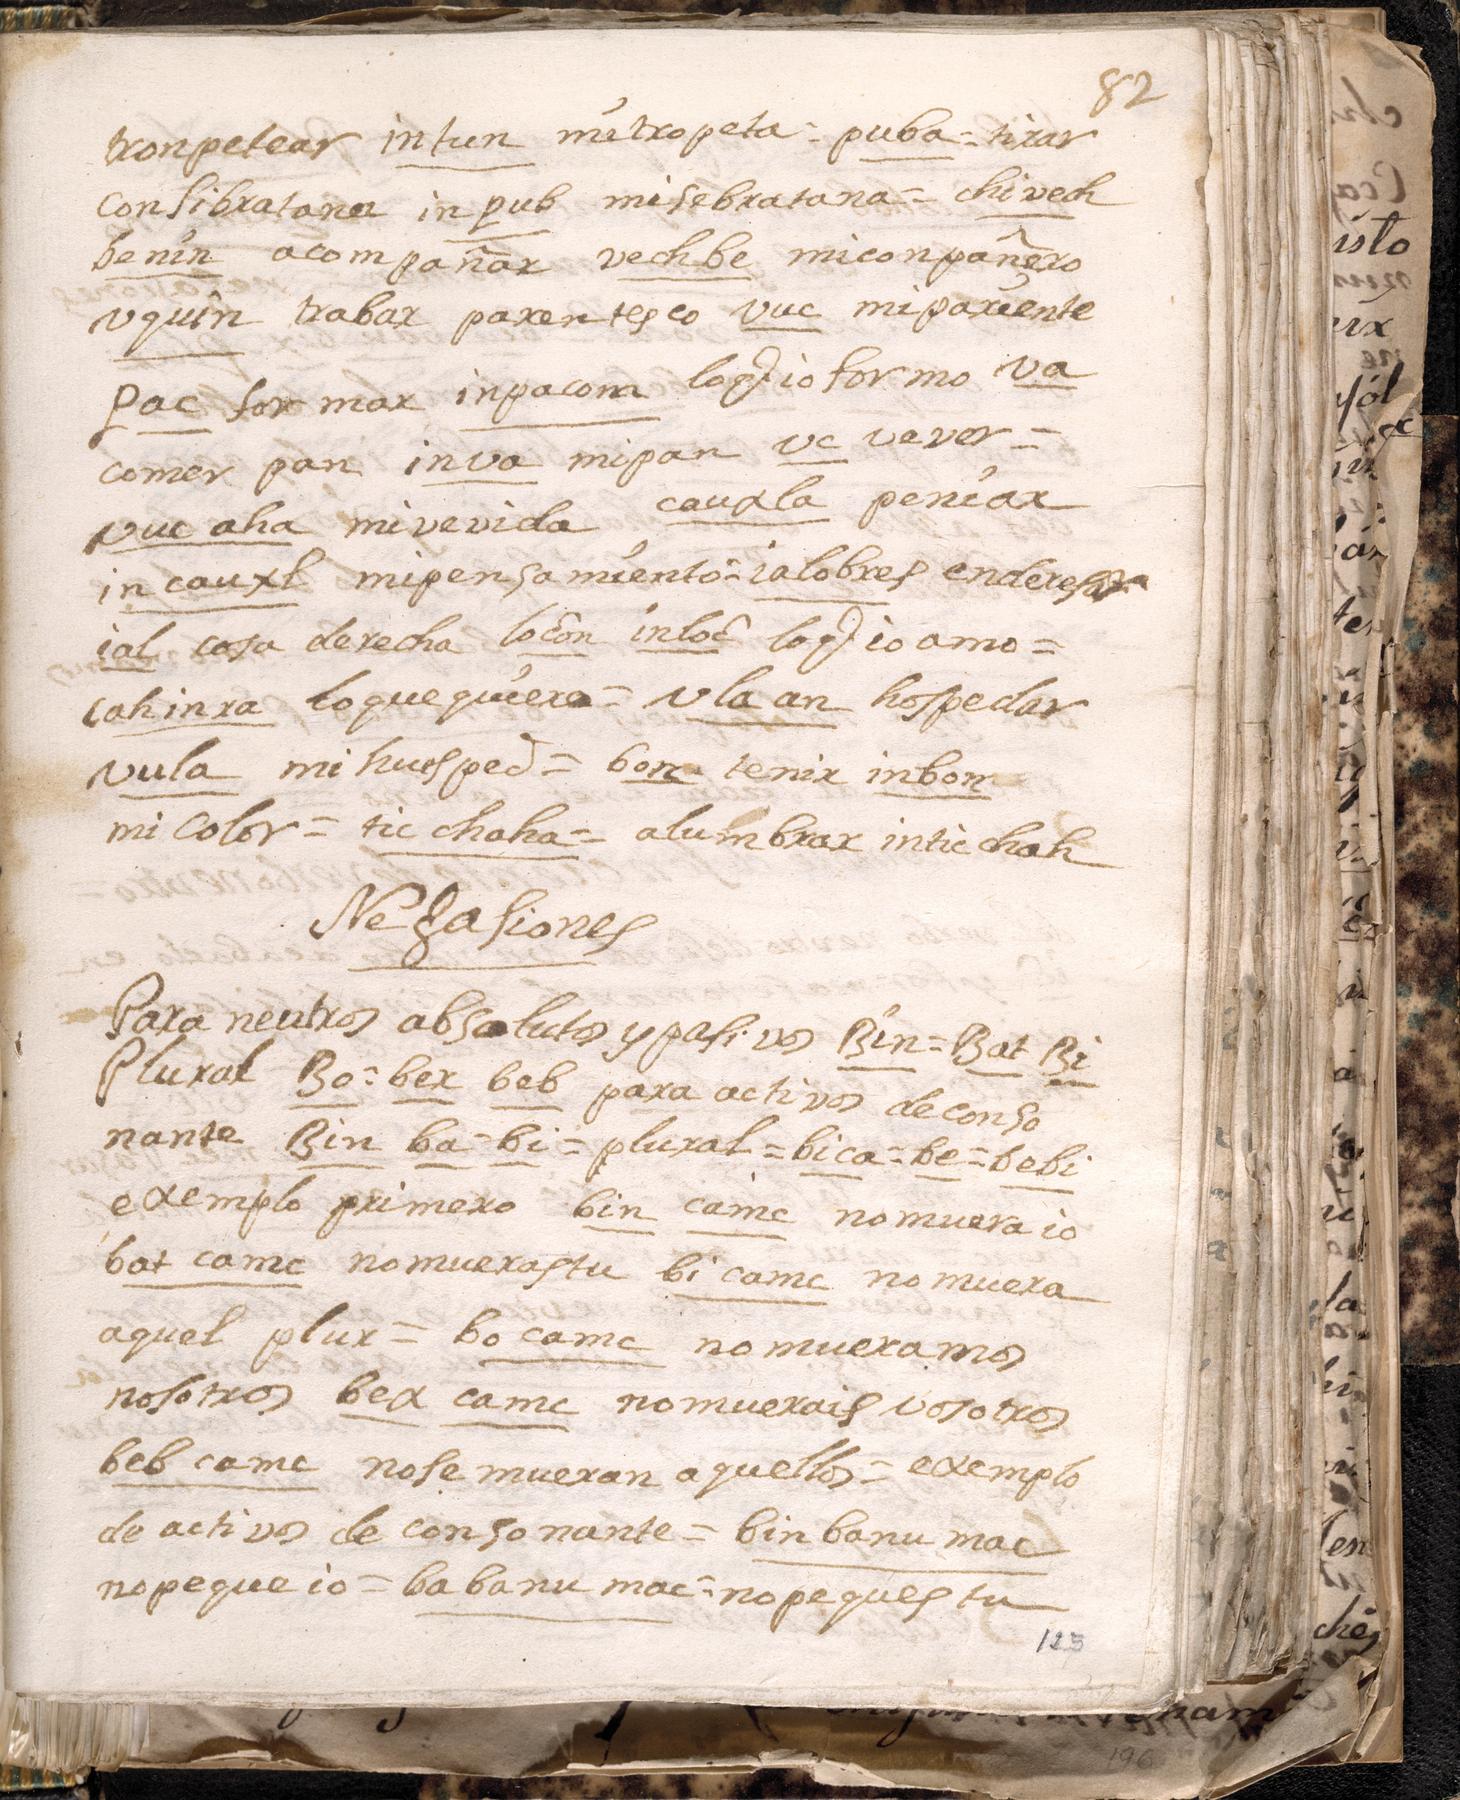 82
tronpetear intun mitropeta = puba = tirar
consibratana in pub misebratana = chivech
benin acompañar vechbe miconpañero
vquin trabar parentesco vuc mipariente
pac formar inpacom loq̃ io formo va
comer pan inva mipan vc vever =
vuc aha mivevida cauxla pensar
in cauxl mipensamiento = ialobres enderesar
ial cosa derecha locon inloc loq̃ io amo =
cahinra loque quiero = vla an hospedar
vula mi huesped = bon tenir inbon
mi color = tic chaha = alumbrar intic chah
Negasiones
Para neutros absolutos y pasivos Bin = Bat Bi
Plural Bo = bex beb para activos de conso
nante Bin ba = bi = plural = bica = be = bebi
exemplo primero bin camc nomuera io
bat camc nomueras tu bi camc no muera
aquel plur = bo camc nomueramos
nosotros bex camc nomuerais vosotros
beb camc nose mueran aquellos = exemplo
de activos de consonante = bin banu mac
nopeque io = ba banu mac = nopeques tu
123
196